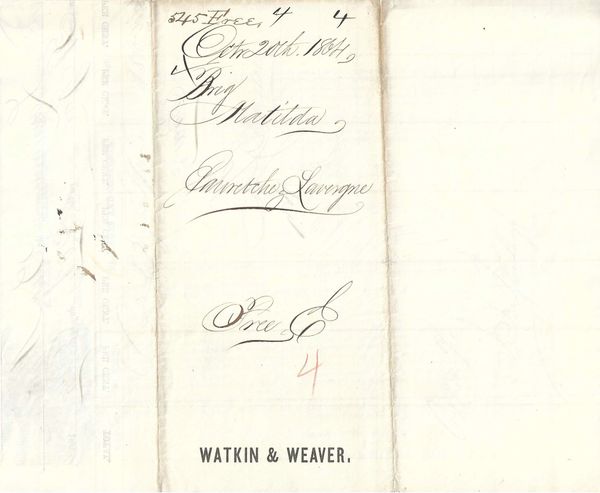 545 Free, 4 4
Octr 20th. 1834,
Brig
Matilda
Lavergne
Free E
4
WATKIN & WEAVER.